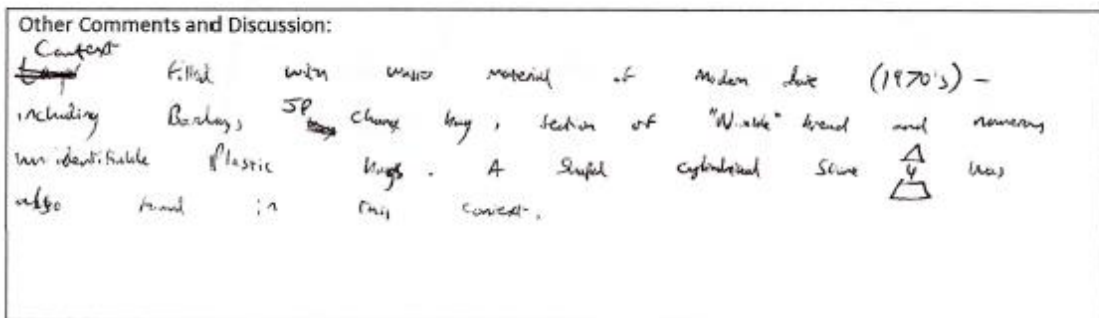 Other Comments and Discussion:
Context
filled with waste material of modern date (1970's) –
including Barclays 5p change bag, section of bread and numerous
unidentifiable plastic bags. A shaped cylindrical stone 4 was
also found in this context.